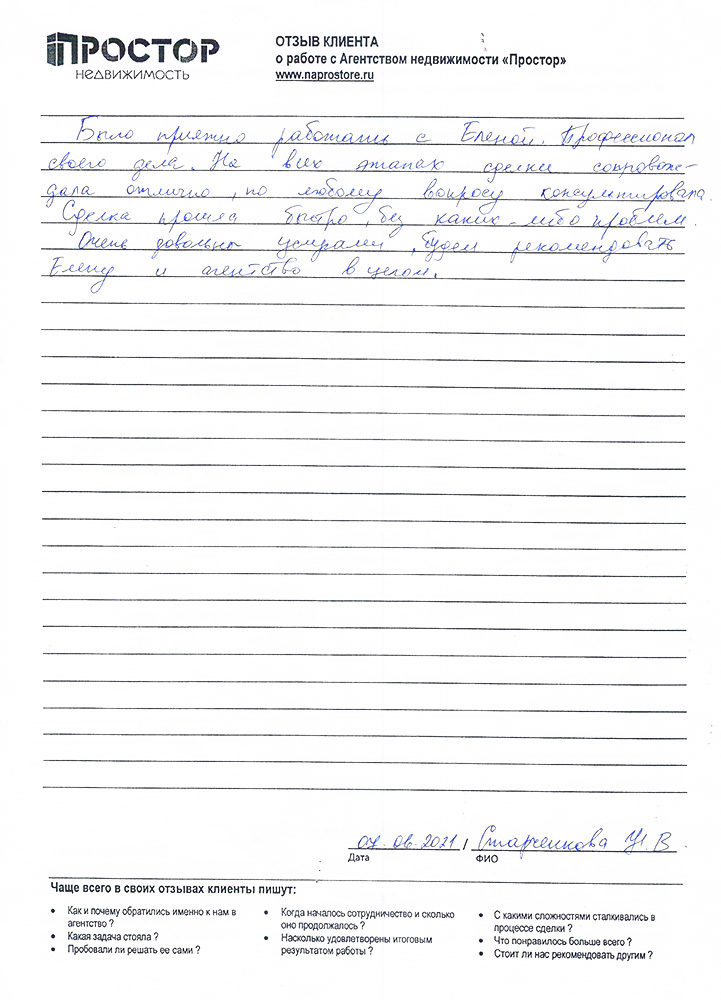 ПРОСТОР
НЕДВИЖИМОСТЬ
ОТЗЫВ КЛИЕНТА
о работе с Агентством недвижимости «Простор»
www.naprostore.ru
Было приятно работать с Еленой. Профессионал
своего дела. На всех этапах сделки сопровож-
дала отлично, по любому вопросу консультировала.
Сделка прошла быстро, без каких-либо проблем.
Очень довольны услугами, будем рекомендовать
Елену и агентство в целом.
07.06.2021 / Старченкова И.В
Дата ФИО
Чаще всего в своих отзывах клиенты пишут:
• Как и почему обратились именно к нам в
агентство ?
• Какая задача стояла ?
• Пробовали ли решать ее сами ?
• Когда началось сотрудничество и сколько
оно продолжалось ?
• Насколько удовлетворены итоговым
результатом работы ?
• С какими сложностями сталкивались в
процессе сделки ?
• Что понравилось больше всего ?
• Стоит ли нас рекомендовать другим ?